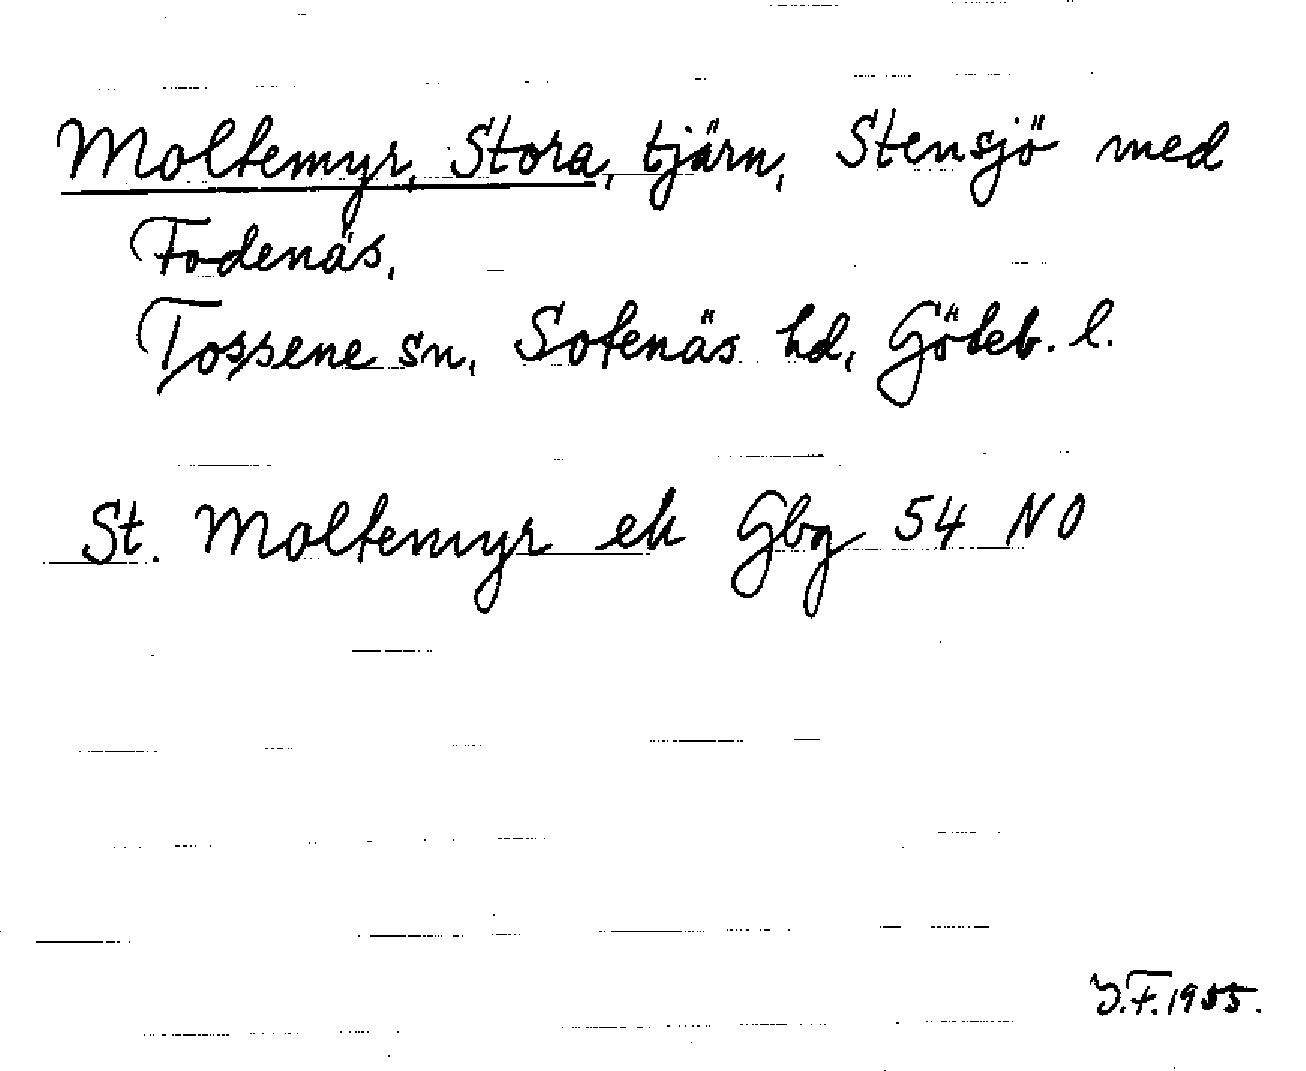 Moltemyr, Stora, tjärn, Stensjö med
Fodenäs,
Tossene sn, Sotenäs hd, Göteb. l.
St. Moltemyr ek Gbg 54 NO
J.F. 1955.